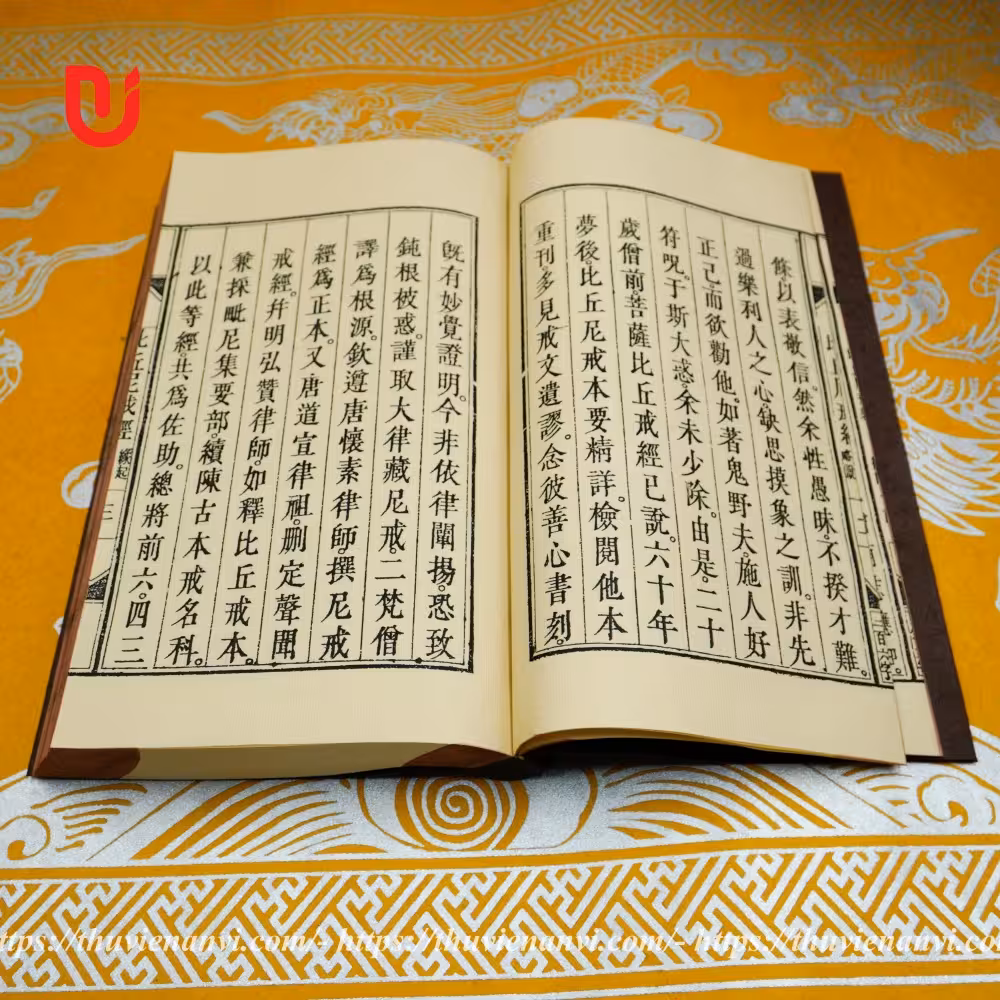 條以表敬信。然余性愚昧。不揆才難。
過樂利人之心。缺思摸象之訓。非先
正己而欲勸他。如著鬼野夫。施人好
符呪。于斯大惑。余未少除。由是。二十
歲僧前菩薩比丘戒經已說。六十年
夢後。比丘尼戒本要精詳。檢閱他本
重刊。多見戒文遺謬。念彼善心書刻。
旣有妙覺證明。今非依律闡揚。恐致
鈍根被惑。謹取大律藏尼戒。二梵僧
譯爲根源。欽遵唐懷素律師。撰尼戒
經爲正本。又唐道宣律祖。删定聲聞
戒經。幷明弘贊律師。如釋比丘戒本。
兼採毗尼集要部。續陳古本戒名科。
以此等經。共爲佐助。總將前六。四三
比丘尼戒經 緣起 三
https://thuvienanvi.com/- https://thuvienanvi.com/- https://thuvienanvi.com/